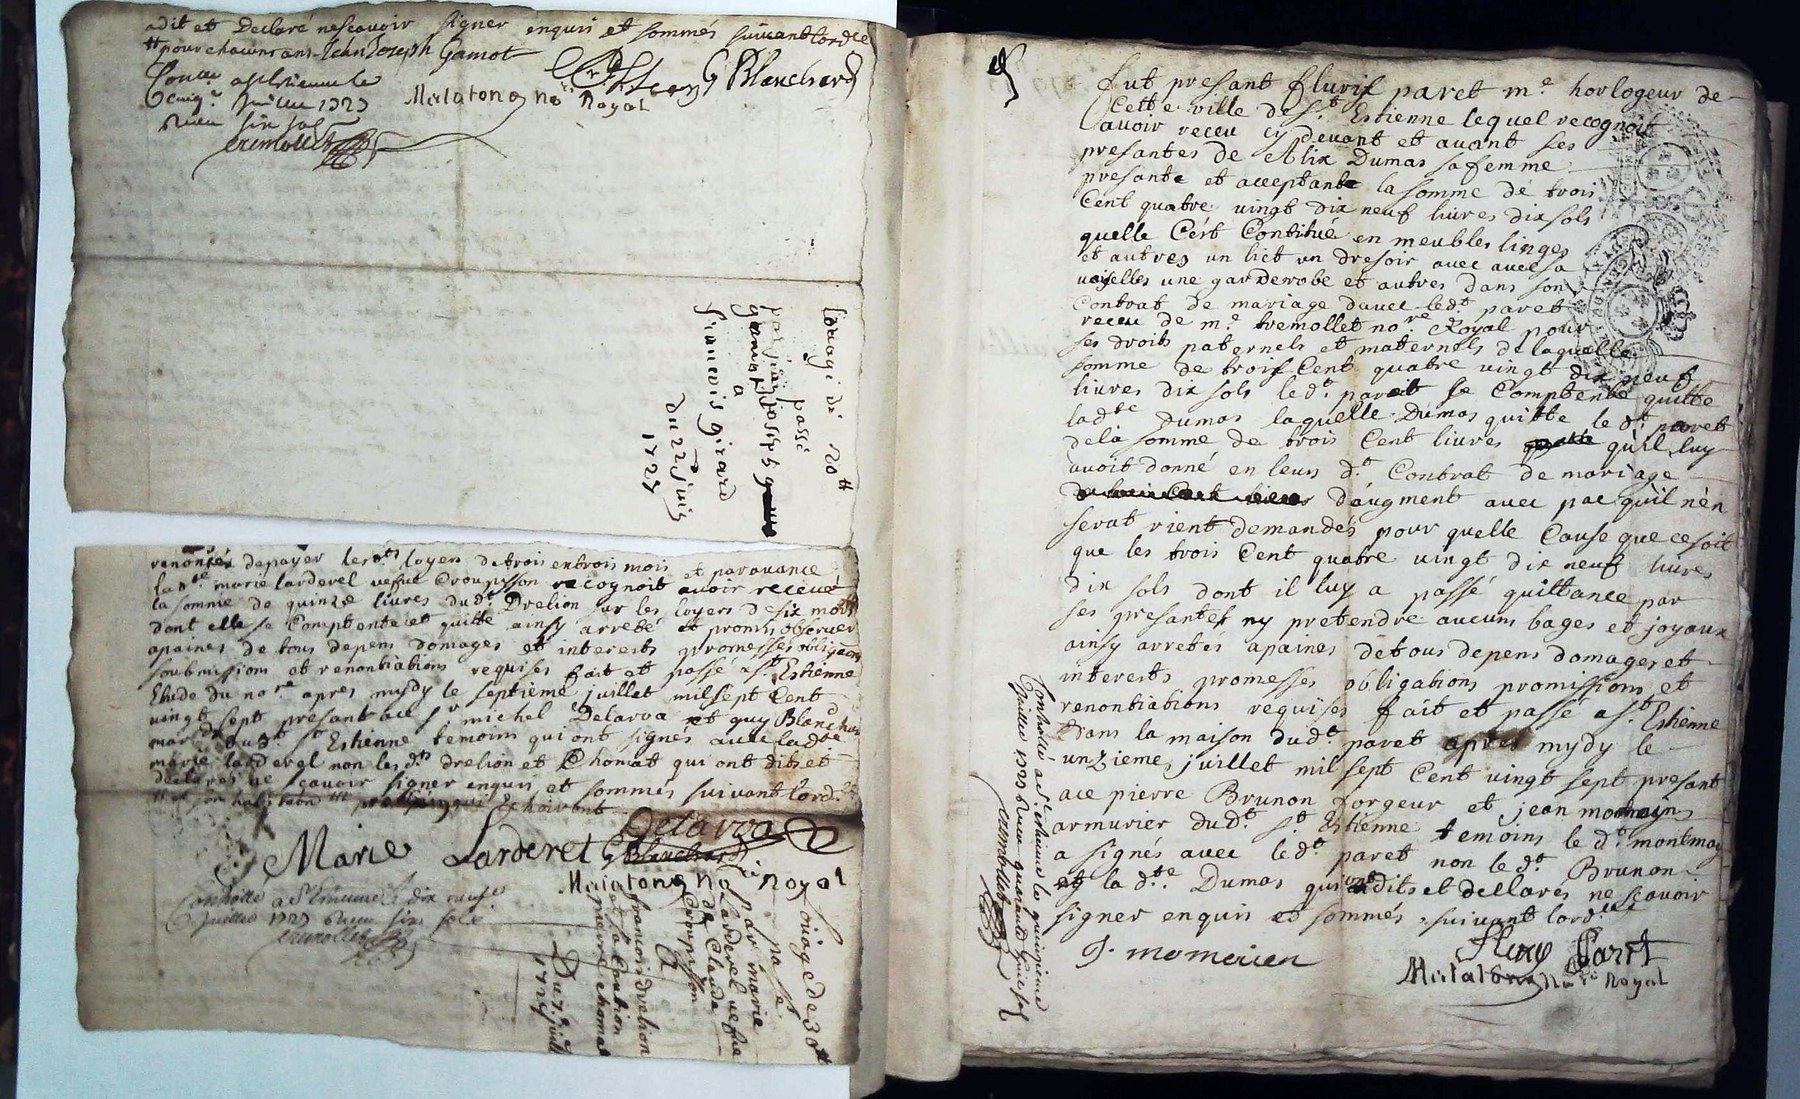 adit et Declaré nescavoir signer enquis et sommés suivant lordce
tt pour chacun ans Jean Joseph Gamot
G Blanchard
Malatong nore Royal
juillet 1727
Receu six sols
tremollet
louage de 20tt
passé
par jean joseph
gamot
a
francois girard
du 22e juin
1727
renoncés depayer lesdts loyers detrois entrois mois et paravance
ladte marie larderel vefue Croupisson recognoit avoir receue
la somme de quinze livres dudt Drelion sur les loyers de six mois
dont elle se Comptente et quitte ainsy arreté et promis observer
apaines de tous depens domages et interests promesses obligaons
soubmissions et renontiations requises fait et passé a st Estienne
Etude du nore apres mydy le septieme juillet mil sept Cent
vingt sept presant ace sr michel Delarva et guy Blanchard
mard dudt st Estienne temoins qui ont signés avec ladte
marie larderel non lesdts drelion et Chomat qui ont dits et
declarés ne scavoir signer enquis et sommés suivant lordce
Delarva
Marie Larderel G Blanchard
Malatong Nore Royal
Controllé a St Etienne le dix neufe
Juillet 1727 Receu six sols
tremollet
Louage de 30tt
passé
par marie
Larderel vefue
de Claude
Croupisson
A
francois drelion
et sa Caution
pierre Chomat
Du 7e juillet
1727
fut presant fluris paret me horlogeur de
Cette ville de st Estienne lequel recognoit
avoir receu cy devant et avant ses
presantes de Alix Dumas sa femme
presante et acceptante la somme de trois
Cent quatre vingt dix neuf livres dix sols
quelle Cest Contitué en meubles linges
et autres un lict un dresoir avec avec sa
vaiselles une garderobe et autres dans son
Contrat de mariage davec ledt paret
receu de me tremollet nore Royal pour
ses droits paternels et maternels de laquelle
somme de trois Cent quatre vingt dix neuf
livres dix sols ledt paret se Comptente quitte
ladte Dumas laquelle Dumas quitte le dt paret
dela somme de trois Cent livres quil luy
avoit donné en leurs dt Contrat de mariage
daugment avec pac quil nen
serat rient demandés pour quelle Cause que ce soit
que les trois Cent quatre vingt dix neuf livres
dix sols dont il luy a passé quittance par
ses presantes ny pretendre aucuns bages et joyaux
ainsy arretés apaines de tous depens domages et
interests promesses obligations promissions et
renontiations requises fait et passé a st Estienne
Dans la maison dudt paret apres mydy le
unzieme juillet mil sept Cent vingt sept presant
ace pierre Brunon forgeur et jean
armurier dudt st Estienne temoins le dt
a signés avec ledt paret non ledt Brunon
et la dte Dumas qui ont dits et dellarés ne scavoir
signer enquis et sommés suivant lordce
J. momeien
Flury Paret
Malatong Nore Royal
Controllé a st estienne le quinzieme
Juillet 1727 Receu quarante huit sols
tremollet